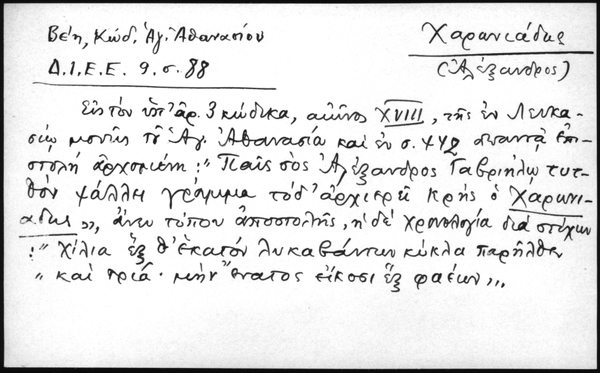 Βέη, Κώδ. Ἁγ. Ἀθανασίου
Δ.Ι.Ε.Ε. 9. σ. 88
Χαρανιάδης
(Ἀλέξανδρος)
Εἰς τὸν ὑπ' ἀρ. 3 κώδικα, αἰῶνος XVIII, τῆς ἐν Λευκα-
σίῳ μονῆς τοῦ Ἁγ. Ἀθανασία καὶ ἐν σ. 442 ἀπαντᾷ ἐπι-
στολὴ ἀρχομένη: "Παῖς σὸς Ἀλέξανδρος Γαβριήλῳ τυτ-
θὸν ψάλλει γράμμα τόδ' ἀρχιερεῖ Κρὴς ὁ Χαρανι-
άδης", ἄνευ τόπου ἀποστολῆς, ἡ δὲ χρονολογία διὰ στίχων
: "Χίλια ἓξ θ' ἑκατὸν λυκαβάντων κύκλα παρῆλθεν
" καὶ τρία· μὴν ἔνατος εἴκοσι ἓξ φαέων",..